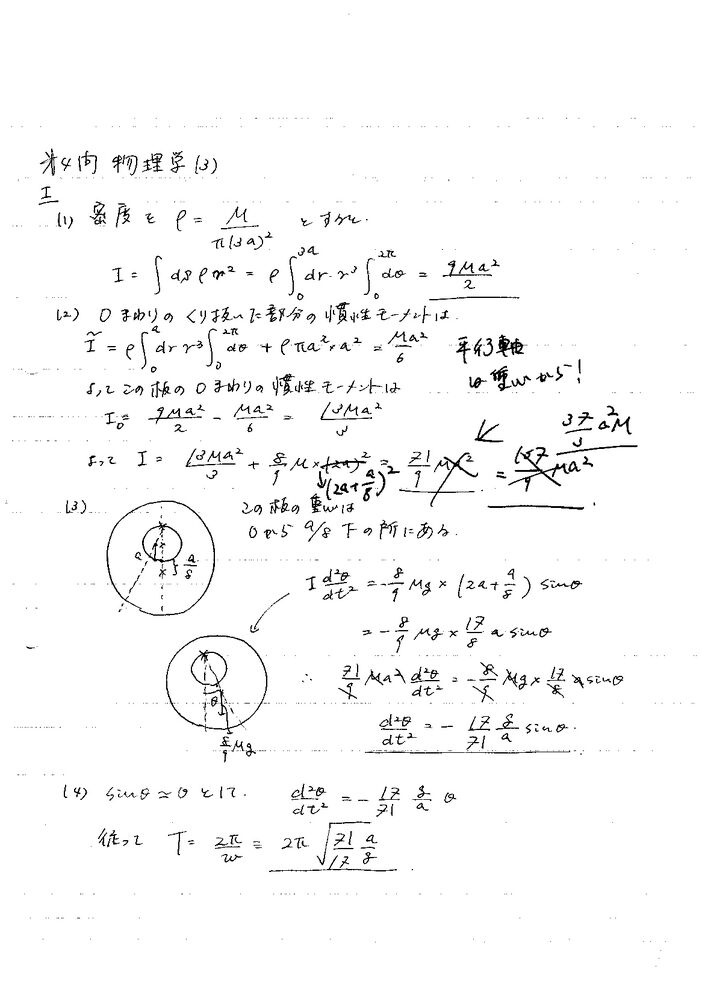 第4問 物理学(3)
I
(1) 密度を ρ = M / π(3a)² とすると.
I = ∫ ds ρ r² = ρ ∫₀^{3a} dr·r³ ∫₀^{2π} dθ = 9Ma²/2
(2) Oまわりのくり抜いた部分の慣性モーメントは.
Ĩ = ρ∫₀^{a} dr r³ ∫₀^{2π} dθ + ρπa²×a² = Ma²/6 平行軸
は重心から!
よってこの板のOまわりの慣性モーメントは
I₀ = 9Ma²/2 - Ma²/6 = 13Ma²/3
37/3 a²M
よって I = 13Ma²/3 + 8/9 M×(2a)² = 71/9 Ma² = 157/9 Ma²
(2a+a/8)²
(3) この板の重心は
Oから a/8 下の所にある.
a a/8
I d²θ/dt² = -8/9 Mg × (2a+a/8) sinθ
= -8/9 Mg × 17/8 a sinθ
∴ 71/9 Ma² d²θ/dt² = -8/9 Mg × 17/8 a sinθ
θ
8/9 Mg
d²θ/dt² = - 17/71 g/a sinθ.
(4) sinθ≃θとして. d²θ/dt² = - 17/71 g/a θ
従って T = 2π/ω = 2π √(71/17 a/g)